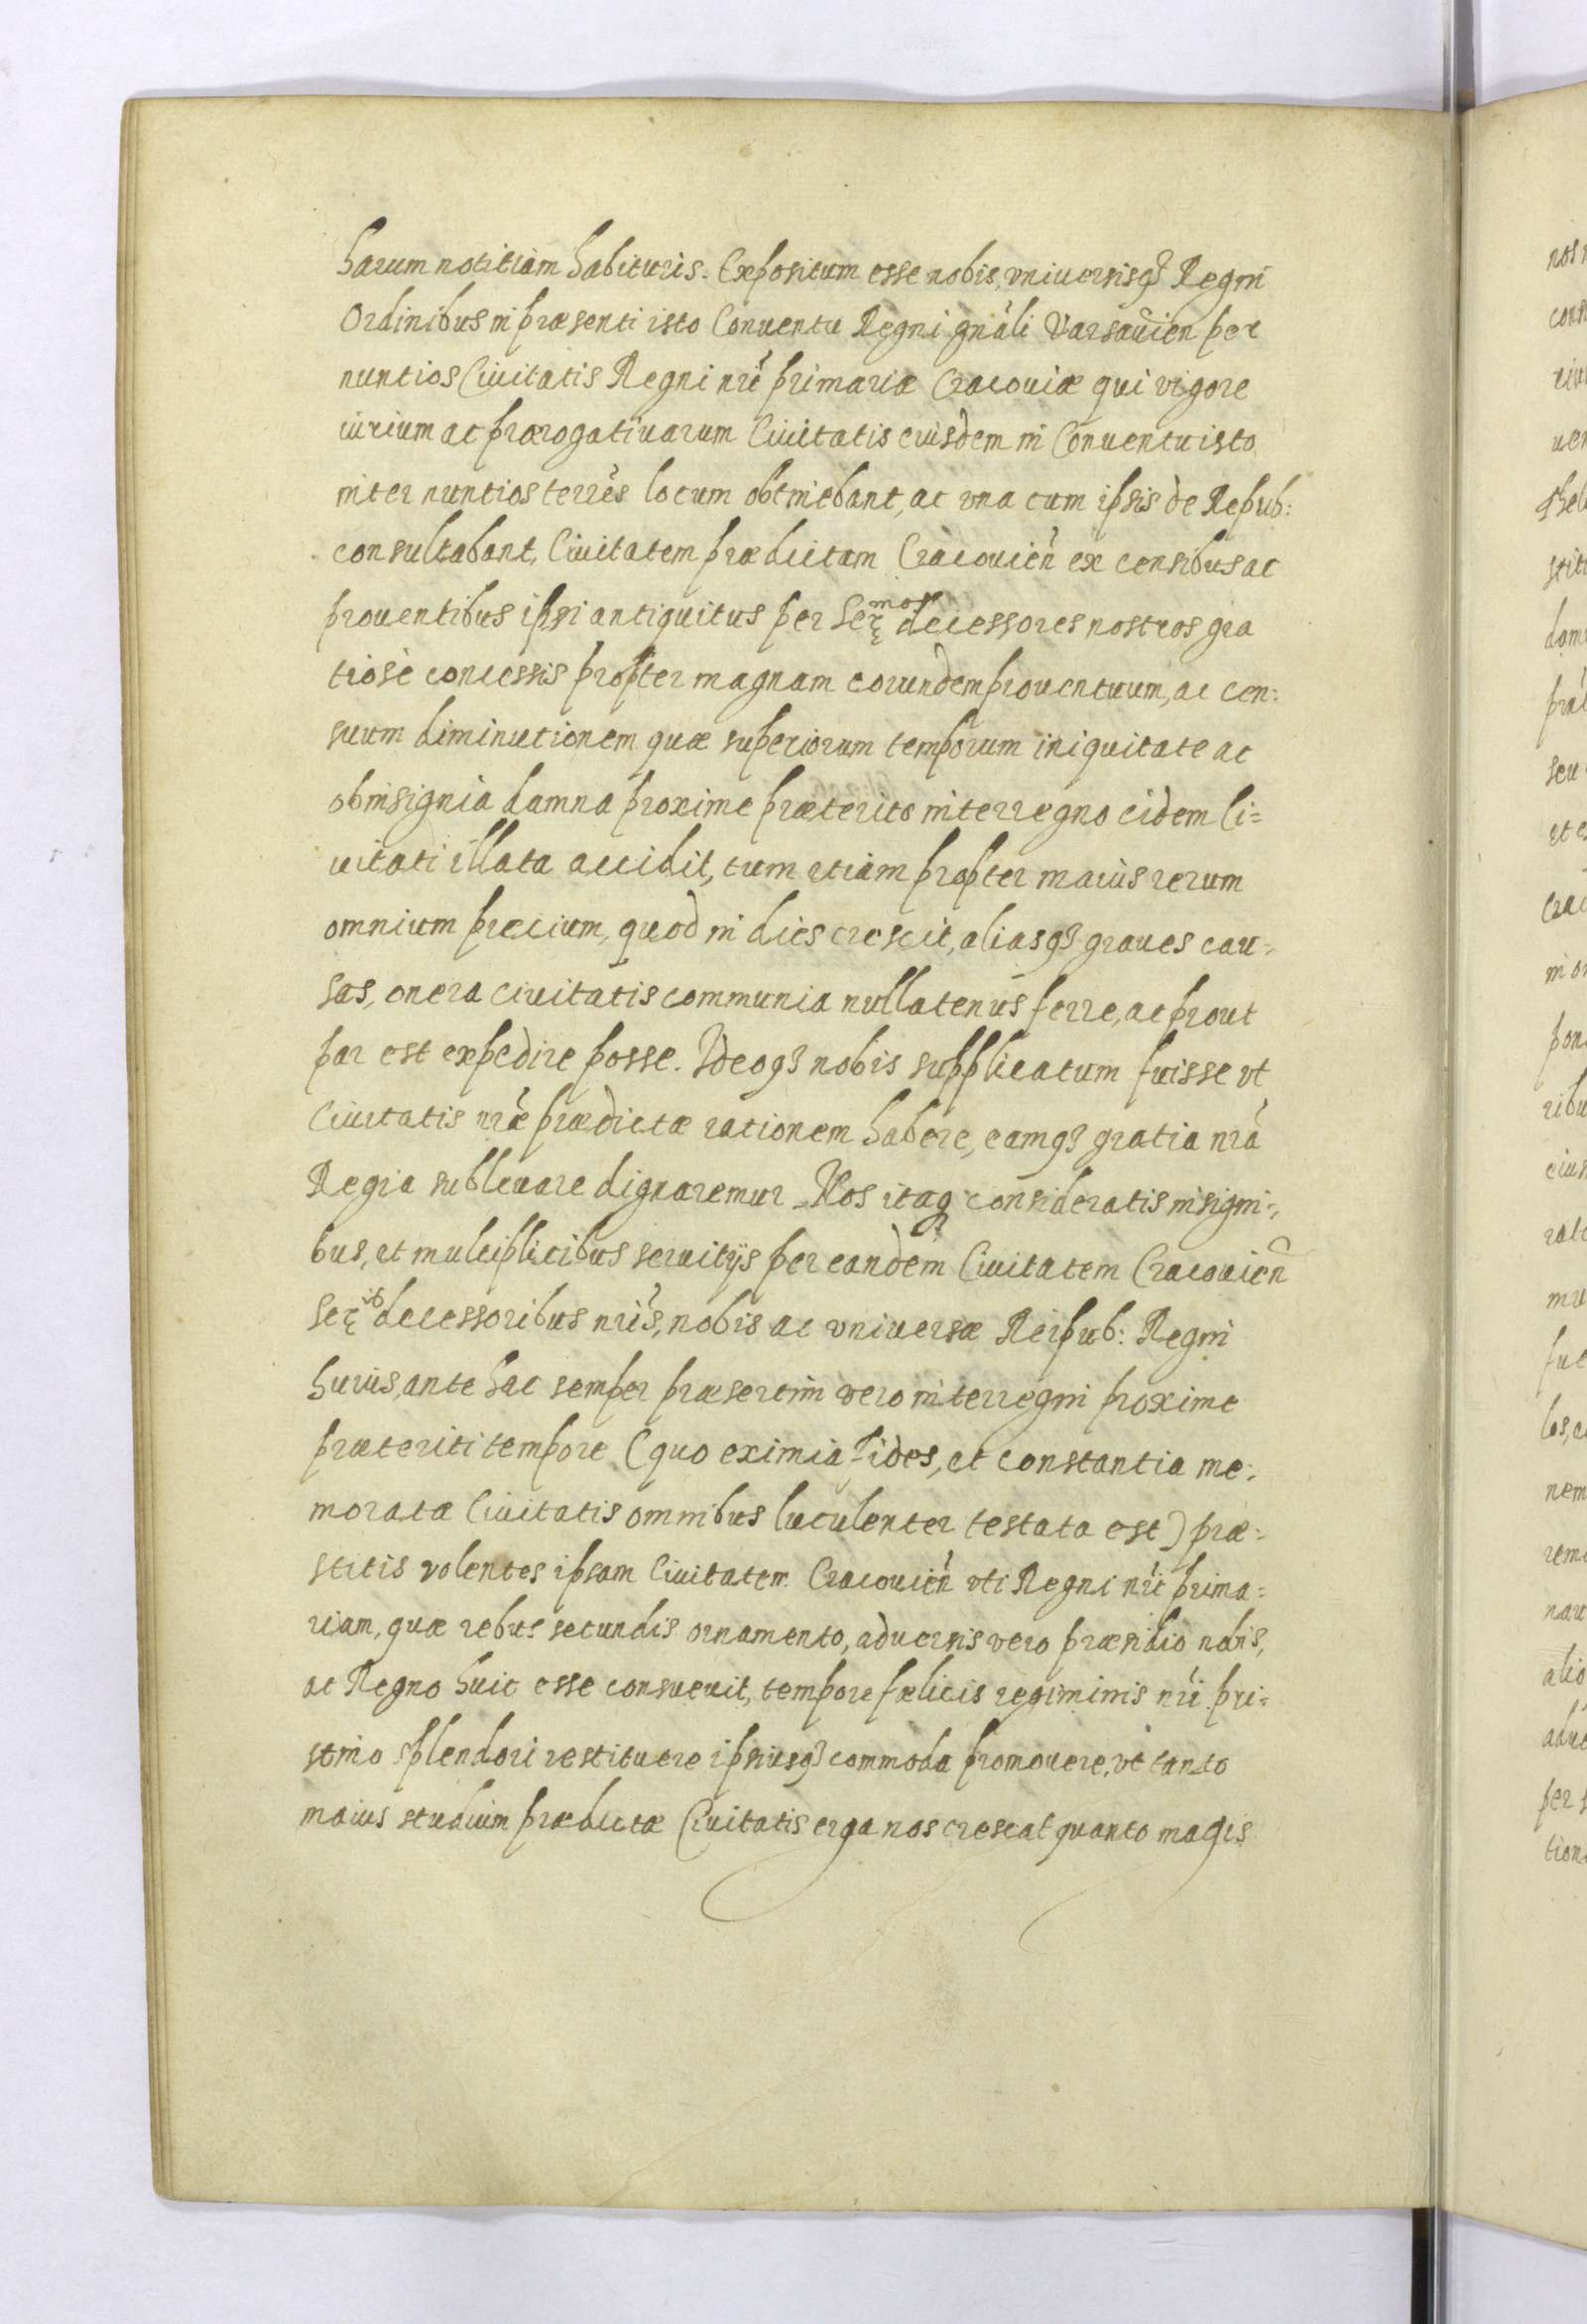 harum notitiam habituris. Expositum esse nobis, vniuersisq3 Regni
Ordinibus in præsenti isto Conuentu Regni gnàli Varsauien per
nuntios Ciuitatis Regni nri primariæ Cracouiæ qui vigore
iurium ac prærogatiuarum Ciuitatis eiusdem in Conuentu isto
inter nuntios terres locum obtinebant, ac vna cum ipsis de Repub:
consultabant, Ciuitatem prædictam Cracouien ex censibus ac
prouentibus ipsi antiquitus per Ser mos decessores nostros gra
tiosè concessis propter magnam eorundem prouentuum, ac cen:
suum diminutionem quæ superiorum temporum iniquitate ac
ob insignia damna proxime præterito interregno eidem Ci=
uitati illata accidit, tum etiam propter maius rerum
omnium precium, quod in dies crescit, aliasq3 graues cau=
sas, onera ciuitatis communia nullatenus ferre, ac prout
par est expedire posse. Ideoq3 nobis supplicatum fuisse vt
Ciuitatis nræ prædictæ rationem habere, eamq3 gratia nrà
Regia subleuare dignaremur. Nos itaq consideratis insigni=
bus, et multiplicibus seruitijs per eandem Ciuitatem Cracouien
Ser ib decessoribus nris, nobis ac vniuersæ Reipub: Regni
huius, ante hac semper præsertim vero interregni proxime
præteriti tempore (quo eximia fides, et constantia me=
moratæ Ciuitatis omnibus luculenter testata est) præ=
stitis volentes ipsam Ciuitatem Cracouien vti Regni nri prima=
riam, quæ rebus secundis ornamento, aduersis vero præsidio nobis,
ac Regno huic esse consueuit, tempore fælicis regiminis nri pri=
stino splendori restituere ipsiusq3 commoda promouere, vt tanto
maius studium prædictæ Ciuitatis erga nos crescat quanto magis